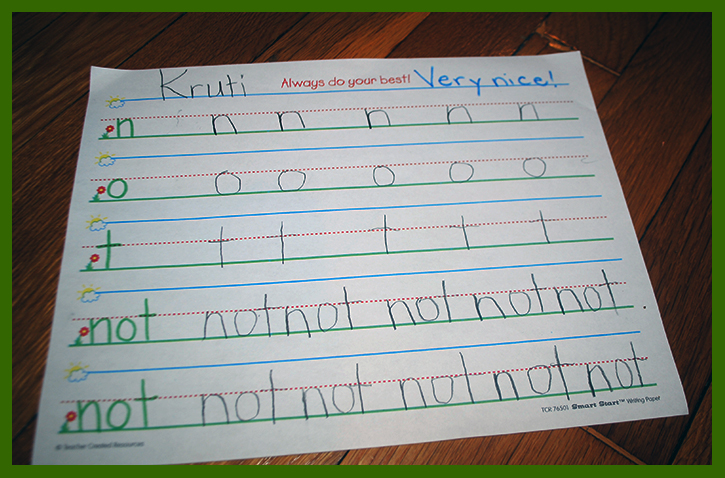 Kruti Always do your best! Very nice!
n n n n n n
o o o o o o
t t t t t t
not not not not not not
not not not not not not
TCR 76501 Smart Start™ Writing Paper
© Teacher Created Resources